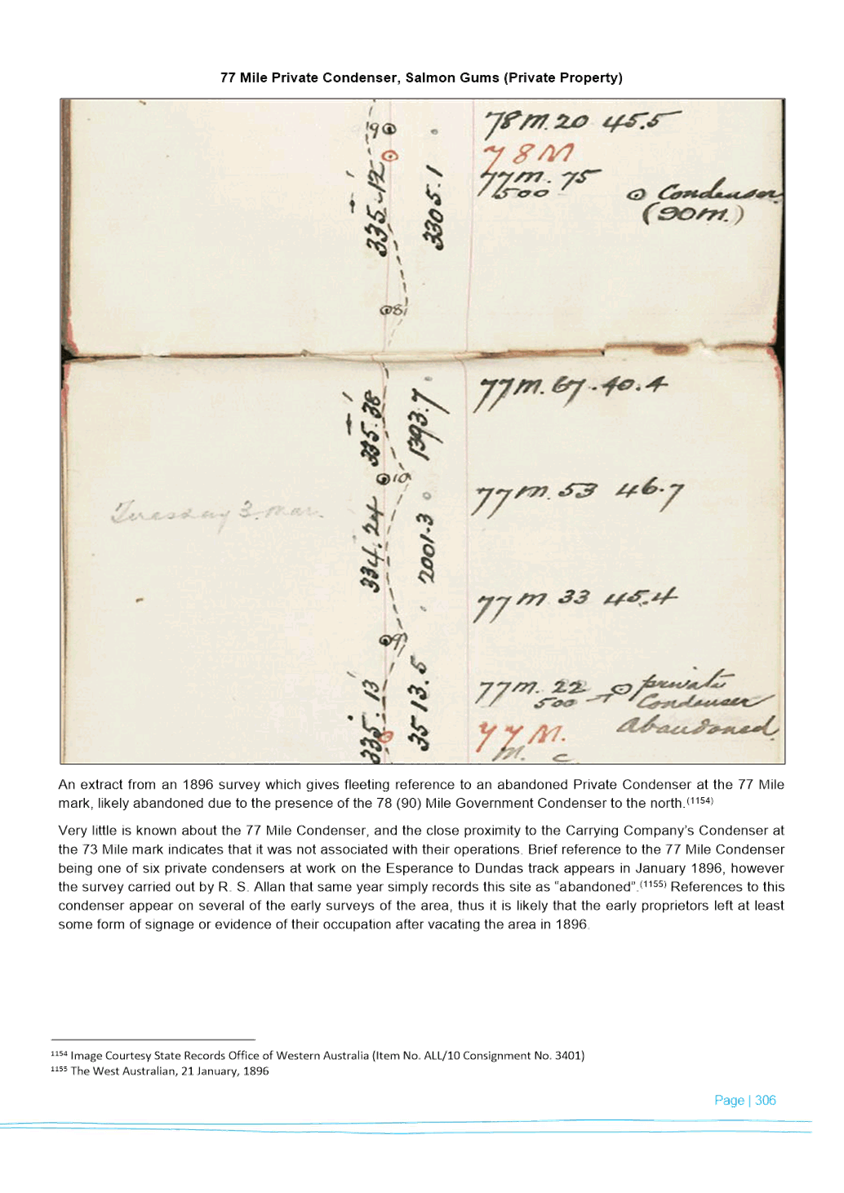 77 Mile Private Condenser, Salmon Gums (Private Property)
78m. 20 45.5
78M
77m. 75
500
Condenser
(90m.)
19
335.12
3305.1
8
77m. 67. 40.4
335.38
1393.7
10
77m. 53 46.7
Tuesday 3. Mar.
334.24
2001.3
77m 33 45.4
9
335.13
3513.5
77m. 22
500
private
Condenser
Abandoned.
77M.
m. c
An extract from an 1896 survey which gives fleeting reference to an abandoned Private Condenser at the 77 Mile
mark, likely abandoned due to the presence of the 78 (90) Mile Government Condenser to the north.(1154)
Very little is known about the 77 Mile Condenser, and the close proximity to the Carrying Company's Condenser at
the 73 Mile mark indicates that it was not associated with their operations. Brief reference to the 77 Mile Condenser
being one of six private condensers at work on the Esperance to Dundas track appears in January 1896, however
the survey carried out by R. S. Allan that same year simply records this site as "abandoned".(1155) References to this
condenser appear on several of the early surveys of the area, thus it is likely that the early proprietors left at least
some form of signage or evidence of their occupation after vacating the area in 1896.
1154 Image Courtesy State Records Office of Western Australia (Item No. ALL/10 Consignment No. 3401)
1155 The West Australian, 21 January, 1896
Page | 306